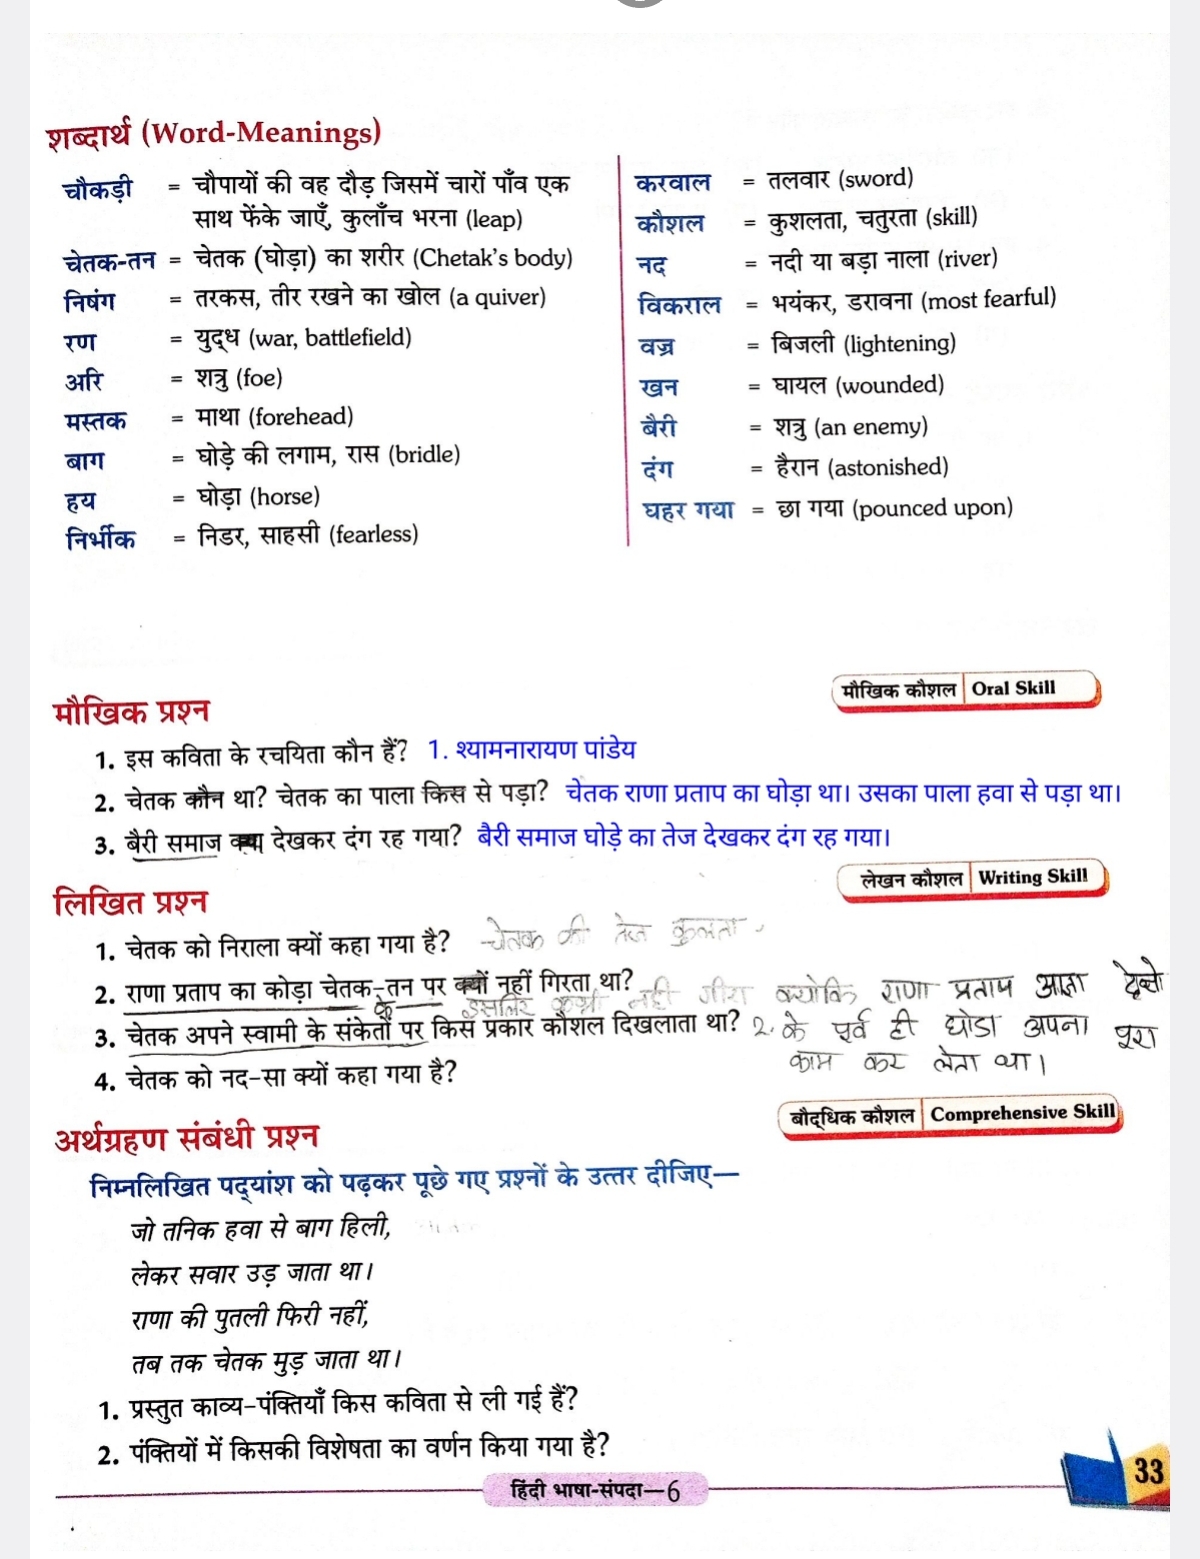 शब्दार्थ (Word-Meanings)
चौकड़ी = चौपायों की वह दौड़ जिसमें चारों पाँव एक
साथ फेंके जाएँ, कुलाँच भरना (leap)
चेतक-तन = चेतक (घोड़ा) का शरीर (Chetak's body)
निषंग = तरकस, तीर रखने का खोल (a quiver)
रण = युद्ध (war, battlefield)
अरि = शत्रु (foe)
मस्तक = माथा (forehead)
बाग = घोड़े की लगाम, रास (bridle)
हय = घोड़ा (horse)
निर्भीक = निडर, साहसी (fearless)
करवाल = तलवार (sword)
कौशल = कुशलता, चतुरता (skill)
नद = नदी या बड़ा नाला (river)
विकराल = भयंकर, डरावना (most fearful)
वज्र = बिजली (lightening)
खन = घायल (wounded)
बैरी = शत्रु (an enemy)
दंग = हैरान (astonished)
घहर गया = छा गया (pounced upon)
मौखिक कौशल Oral Skill
मौखिक प्रश्न
1. इस कविता के रचयिता कौन हैं? 1. श्यामनारायण पांडेय
2. चेतक कौन था? चेतक का पाला किस से पड़ा? चेतक राणा प्रताप का घोड़ा था। उसका पाला हवा से पड़ा था।
3. बैरी समाज क्या देखकर दंग रह गया? बैरी समाज घोड़े का तेज देखकर दंग रह गया।
लेखन कौशल Writing Skill
लिखित प्रश्न
1. चेतक को निराला क्यों कहा गया है? चेतक की तेज
2. राणा प्रताप का कोड़ा चेतक-तन पर क्यों नहीं गिरता था? नही क्योकि राणा प्रताप आज्ञा
के इसलिए कभी
3. चेतक अपने स्वामी के संकेतों पर किस प्रकार कौशल दिखलाता था? 2. के पूर्व ही घोडा अपना पूरा
काम कर लेता था।
4. चेतक को नद-सा क्यों कहा गया है?
बौद्धिक कौशल Comprehensive Skill
अर्थग्रहण संबंधी प्रश्न
निम्नलिखित पद्यांश को पढ़कर पूछे गए प्रश्नों के उत्तर दीजिए—
जो तनिक हवा से बाग हिली,
लेकर सवार उड़ जाता था।
राणा की पुतली फिरी नहीं,
तब तक चेतक मुड़ जाता था।
1. प्रस्तुत काव्य-पंक्तियाँ किस कविता से ली गई हैं?
2. पंक्तियों में किसकी विशेषता का वर्णन किया गया है?
हिंदी भाषा-संपदा—6
33